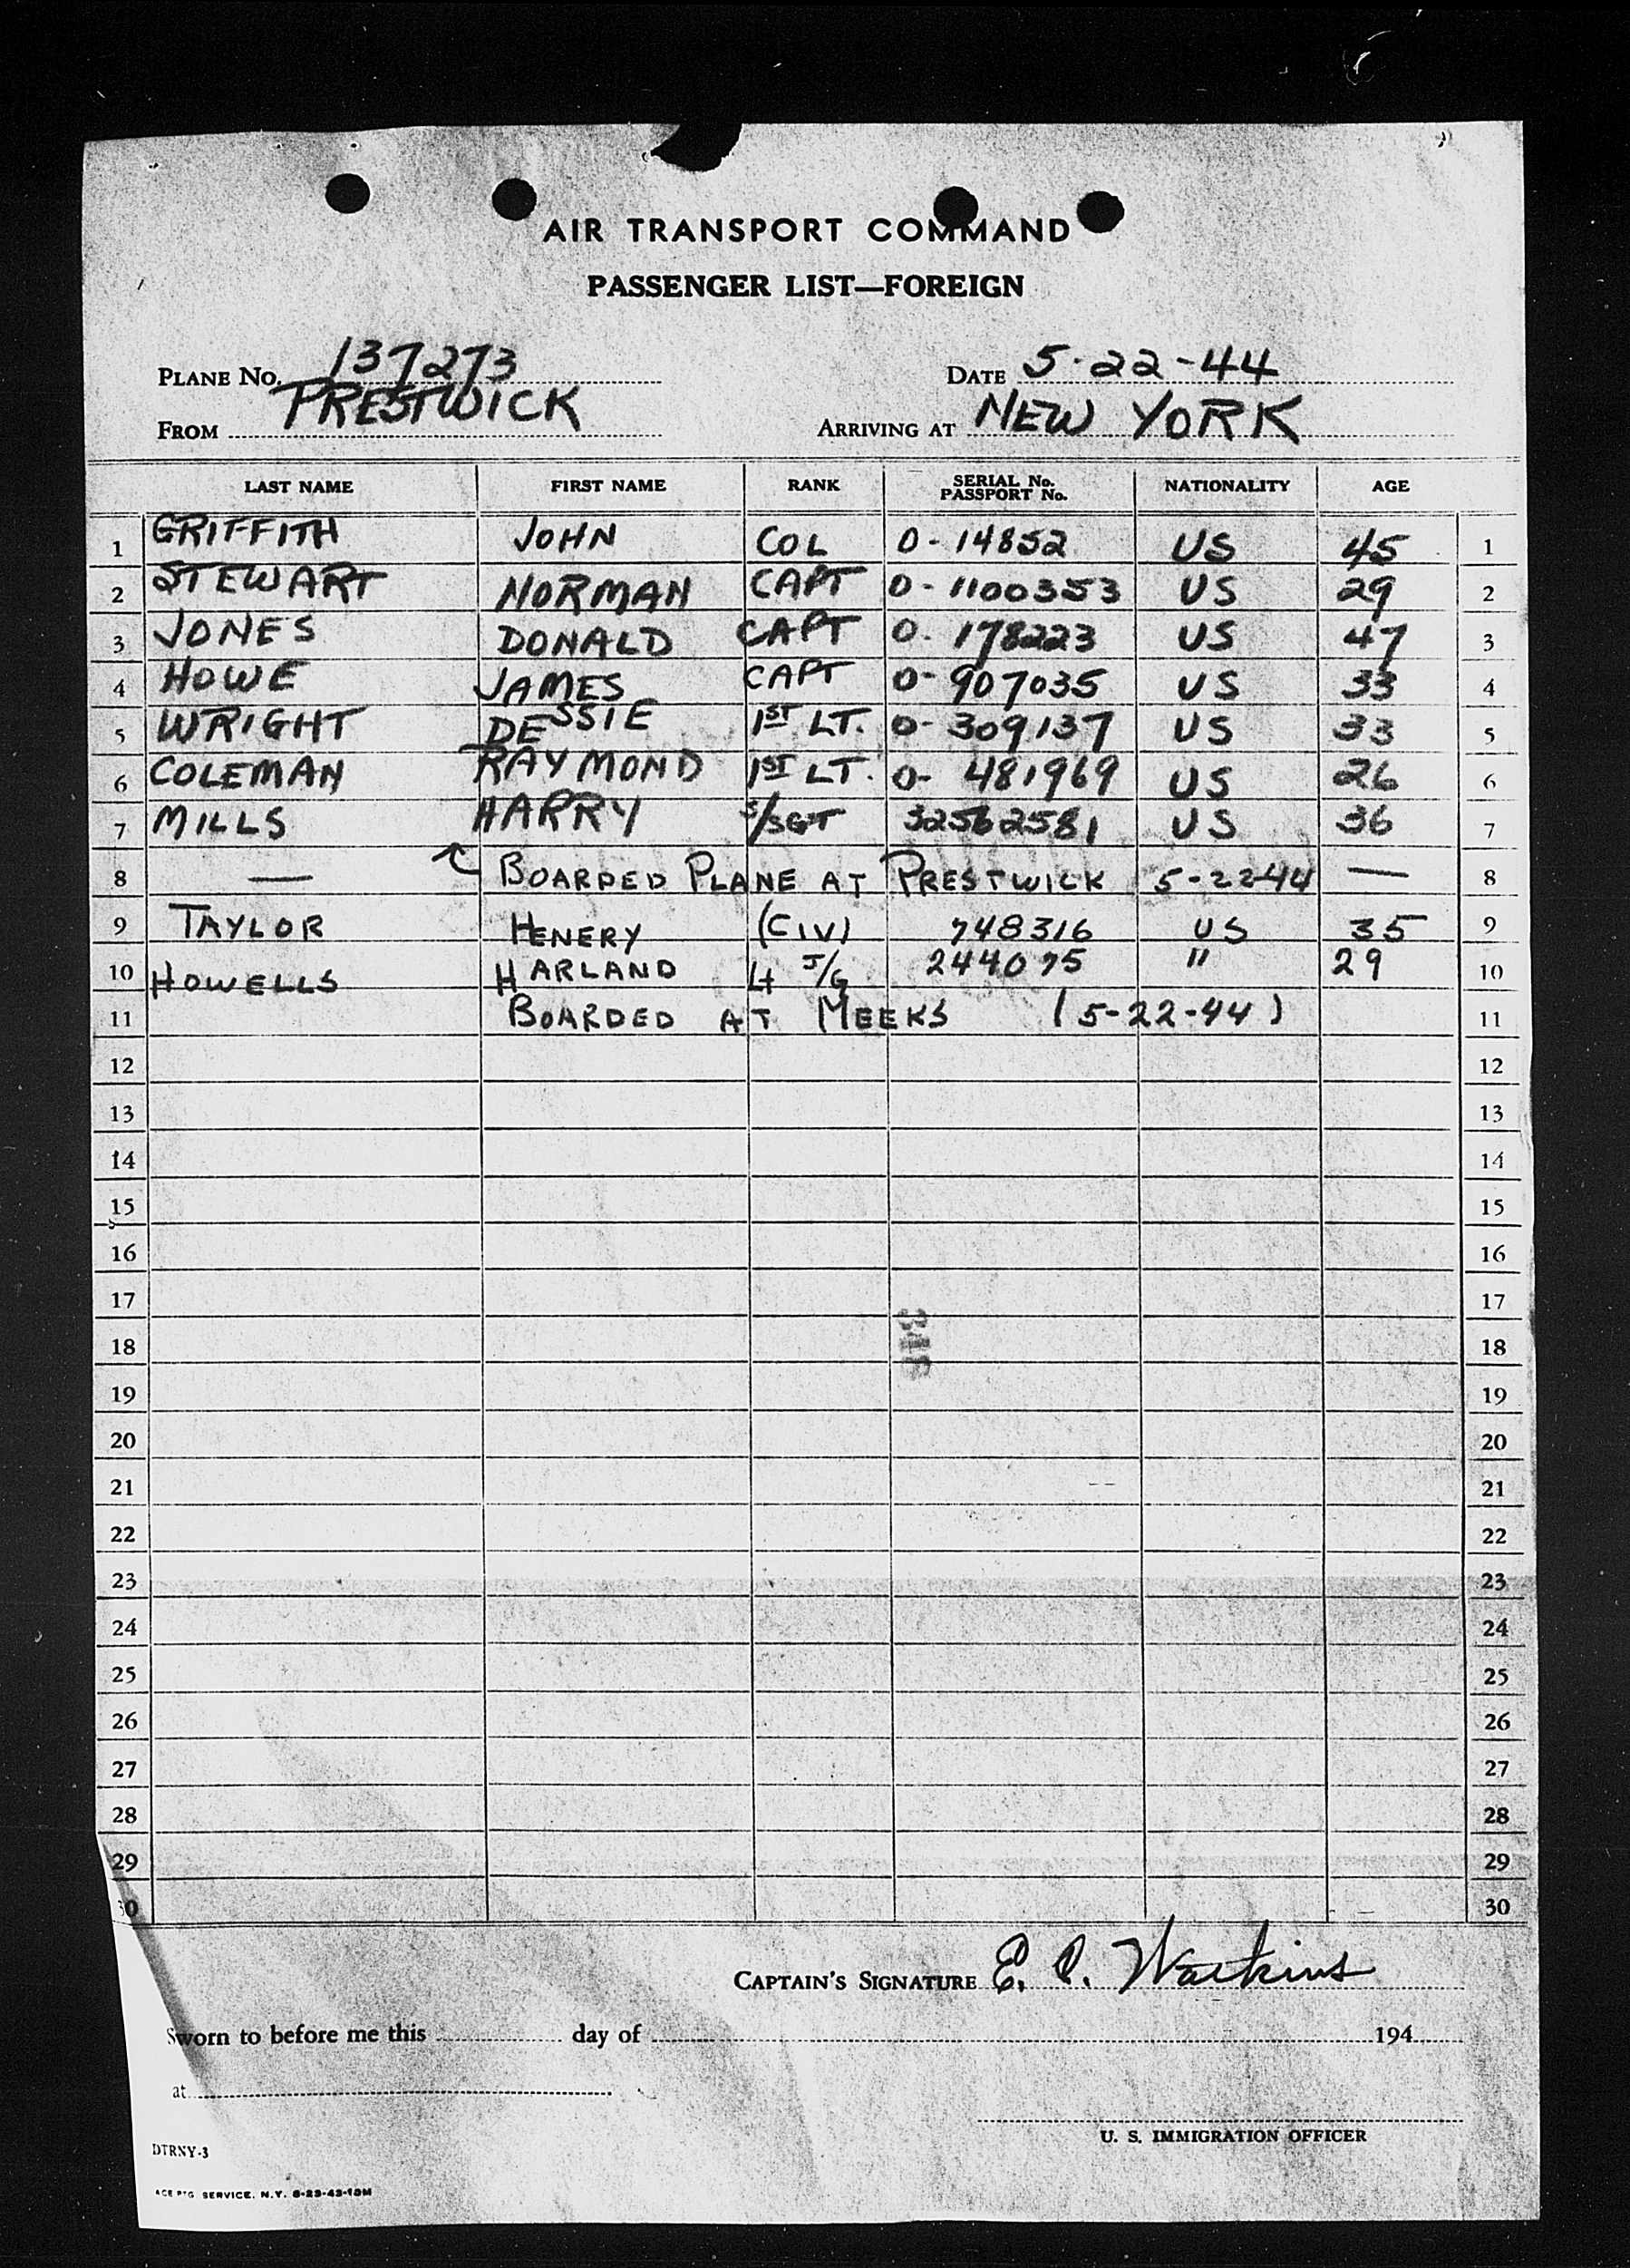 AIR TRANSPORT COMMAND
PASSENGER LIST—FOREIGN
PLANE No. 137273 DATE 5-22-44
FROM PRESTWICK ARRIVING AT NEW YORK
LAST NAME FIRST NAME RANK SERIAL No. PASSPORT No. NATIONALITY AGE
1 GRIFFITH JOHN COL O-14852 US 45 1
2 STEWART NORMAN CAPT O-1100353 US 29 2
3 JONES DONALD CAPT O-178223 US 47 3
4 HOWE JAMES CAPT O-907035 US 33 4
5 WRIGHT DESSIE 1ST LT. O-309137 US 33 5
6 COLEMAN RAYMOND 1ST LT. O-481969 US 26 6
7 MILLS HARRY S/SGT 32562581 US 36 7
8 — BOARDED PLANE AT PRESTWICK 5-22-44 — 8
9 TAYLOR HENERY (CIV) 748316 US 35 9
10 HOWELLS HARLAND Lt J/G 244075 " 29 10
11 BOARDED AT MEEKS (5-22-44) 11
12 12
13 13
14 14
15 15
16 16
17 17
18 18
19 19
20 20
21 21
22 22
23 23
24 24
25 25
26 26
27 27
28 28
29 29
30 30
CAPTAIN'S SIGNATURE E. P. Watkins
Sworn to before me this day of 194
at
U. S. IMMIGRATION OFFICER
DTRNY-3
ACE PTG SERVICE, N.Y. 6-23-43-10M